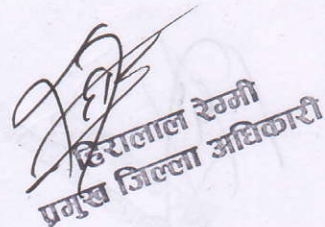 हिरालाल रेग्मी
प्रमुख जिल्ला अधिकारी